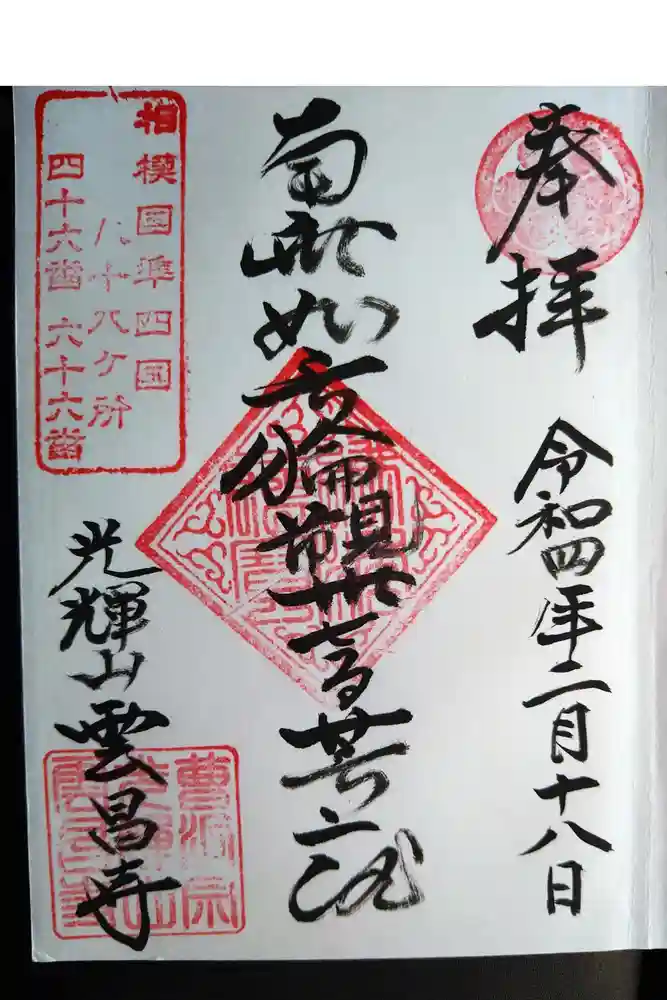 奉拝
令和四年二月十八日
南無如意輪観世音菩薩
相模国準四国
八十八ヶ所
四十六番 六十六番
光輝山雲昌寺
曹洞宗